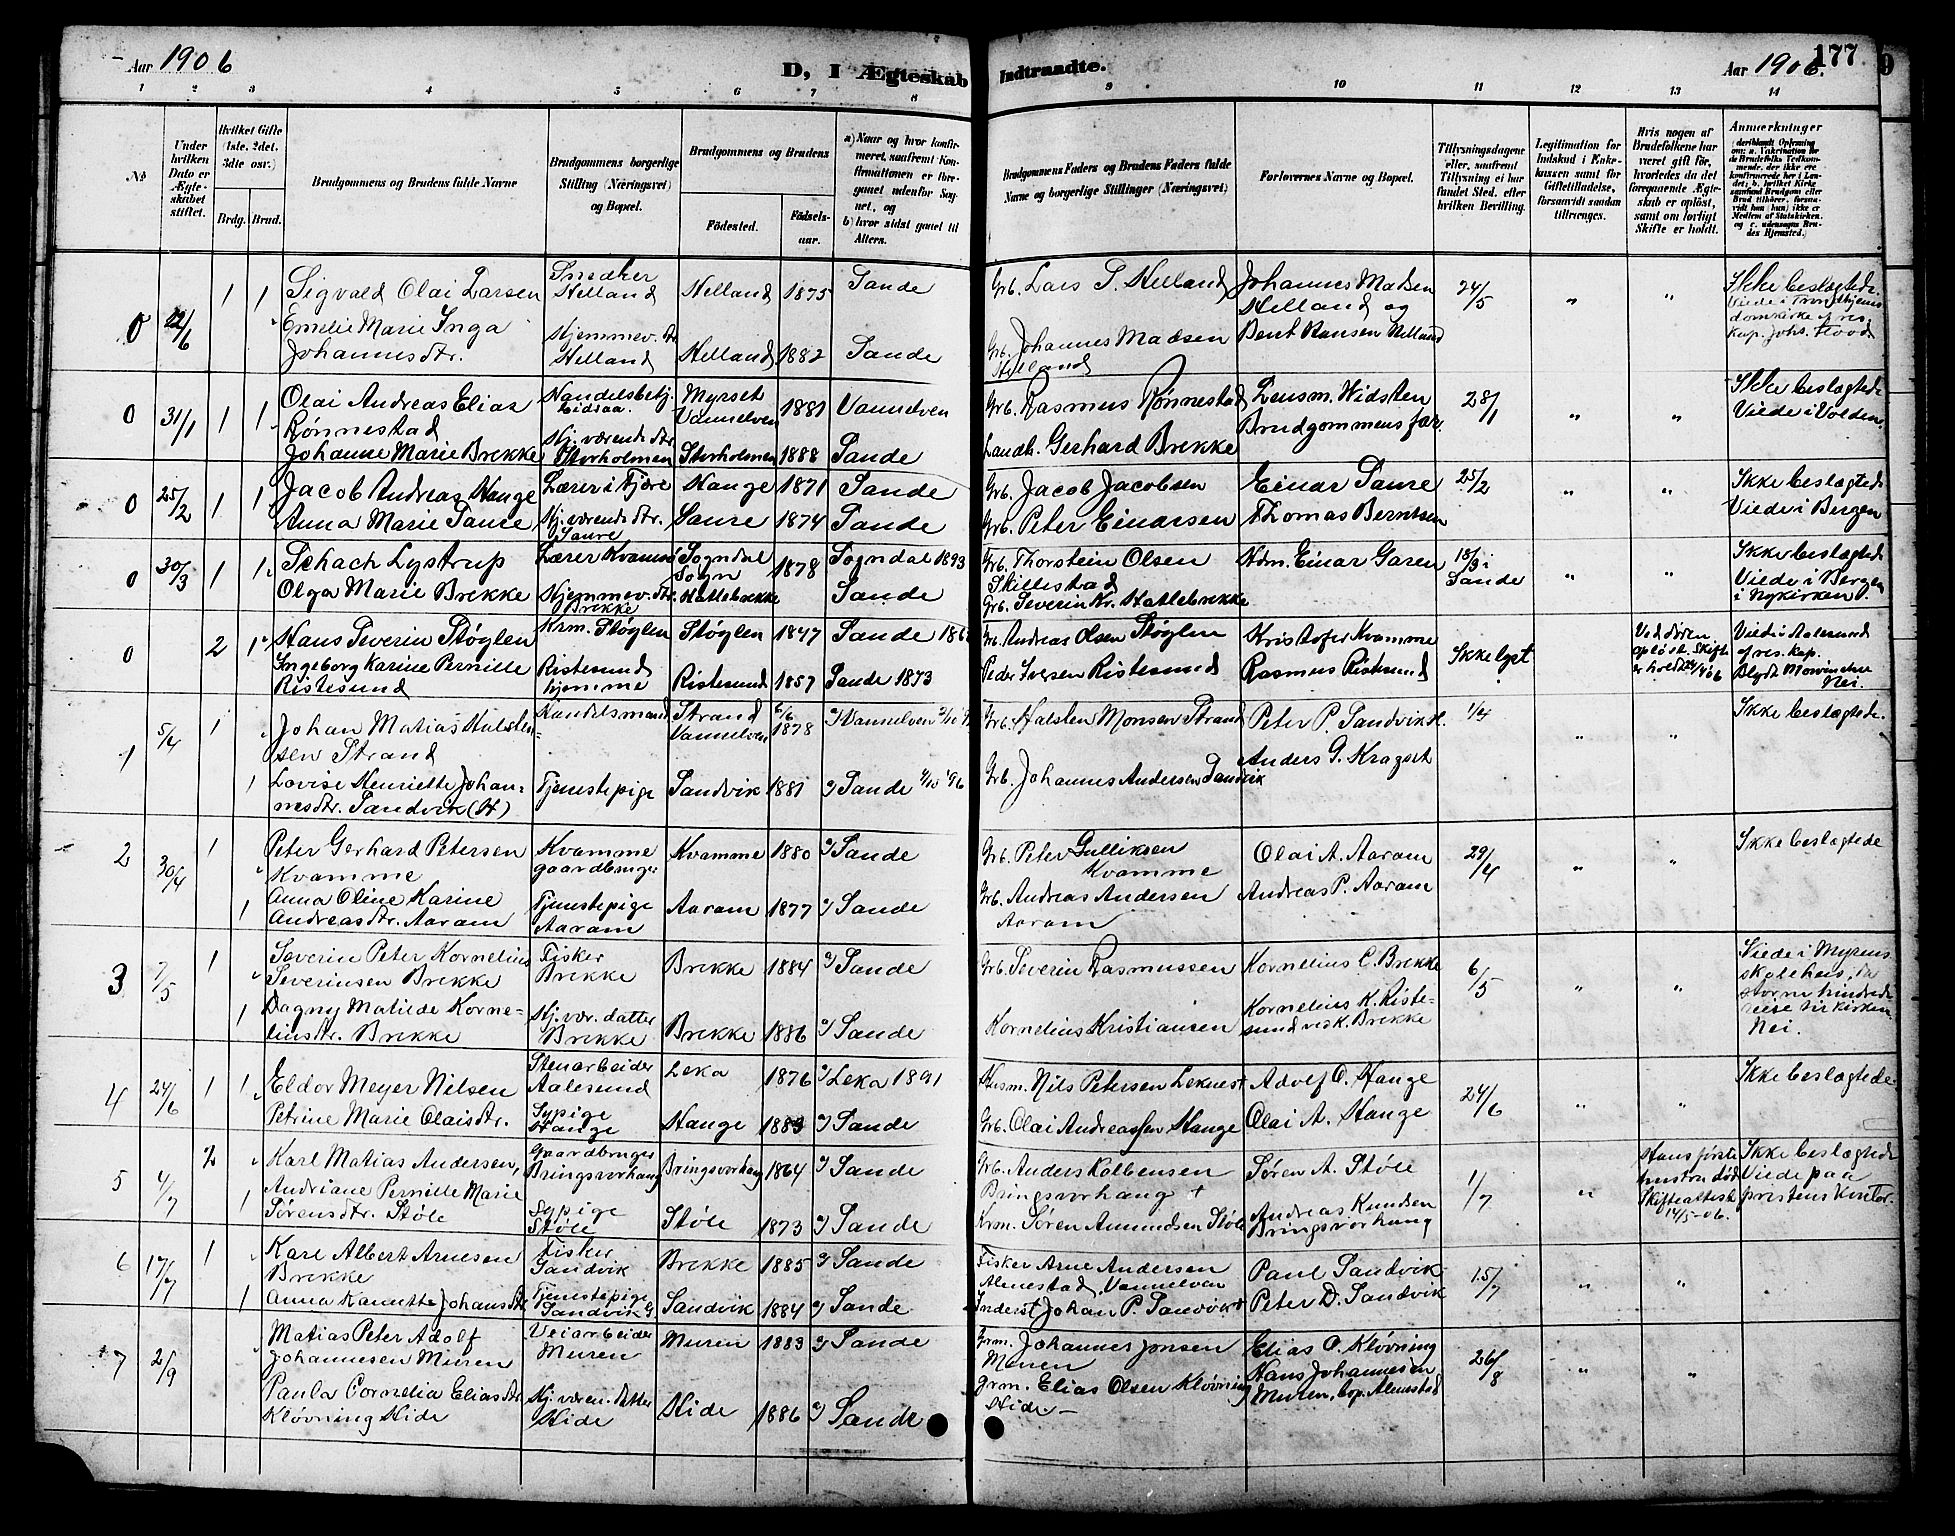 Aar 1906
D, I Ægteskab Indtraadte.
Aar 1906.
177
9
1 2 3 4 5 6 7 8 9 10 11 12 13 14
№
Under hvilken Dato er Ægteskabet stiftet.
Hvilket Gifte (1ste, 2det, 3die osv.)
Brdg. Brud.
Brudgommens og Brudens fulde Navne
Brudgommens borgerlige Stilling (Næringsvei) og Bopæl.
Brudgommens og Brudens
Fødested.
Fødselsaar.
a) Naar og hvor konfirmeret, saafremt Konfirmationen er foregaaet udenfor Sognet, og
b) hvor sidst gaaet til Alters.
Brudgommens Faders og Brudens Faders fulde Navne og borgerlige Stillinger (Næringsvei)
Forlovernes Navne og Bopæl.
Tillysningsdagene eller, saafremt Tillysning ei har fundet Sted, efter hvilken Bevilling.
Legitimation for Indskud i Enkekassen samt for Giftetilladelse, forsaavidt saadan tiltrænges.
Hvis nogen af Brudefolkene har været gift før, hvorledes da det foregaaende Ægteskab er opløst, samt om lovligt Skifte er holdt.
Anmærkninger
0 22/6 1 1 Sigvald Olai Larsen
Snedker Helland
Helland 1875 Sande
Grb. Lars P. Helland
Johannes Madsen Helland og
24/5 " "
Ikke beslægtede.
Viede i Trondhjems domkirke af res. kap. Johs. Flood.
Emelie Marie Inga Johannesdtr.
Hjemmev. dtr. Helland
Helland 1882 Sande
Grb. Johannes Madsen Helland
Bent Hansen Helland
0 31/1 1 1 Olai Andreas Elias Rønnestad
Handelsbetj. Eidsaa.
Myrset Vannelven 1881 Vannelven
Grb. Rasmus Rønnestad
Lensm. Widsten
28/1 " "
Ikke beslægtede
Viede i Volden.
Johanne Marie Brekke
Hj. værende dtr. Storholmen
Storholmen 1888 Sande
Landh. Gerhard Brekke
Brudgommens far.
0 25/2 1 1 Jacob Andreas Hauge
Lærer i Fjære
Hauge 1871 Sande
Grb. Jacob Jacobsen
Einar Saure
25/2 " "
Ikke beslægtede
Viede i Bergen
Anna Marie Saure
Hj. værende dtr. Saure
Saure 1874 Sande
Grb. Peter Einarsen
Thomas Berntsen
0 30/3 1 1 Schach Lystrup
Lærer Kvamsø
Sogndal Sogn 1878 Sogndal 1893
Grb. Thorstein Olsen Skillestad
Hdm. Einar Garen
18/3 i Sande " "
Ikke beslægtede
Viede i Bergen i Nykirken
Olga Marie Brekke
Hjemmev. dtr. Brekke
Hatlebrekke Sande
Grb. Severin Kr. Hatlebrekke
0 2 1 Hans Severin Støglen
Krm. Støglen
Støglen 1847 Sande
Grb. Andreas Olsen Støglen
Kristofer Kvamme
Ikke lyst
Ved døden opløst. Skifte er holdt 24/4 06
Viede i Aalesund af res. kap. Blydt
Nei.
Ingeborg Karine Pernille Ristesund
Ristesund hjemme
Ristesund 1857 Sande 1873
Peder Iversen Ristesund
Rasmus Ristesund
1 5/4 1 Johan Matias Halstensen Strand
Handelsmand
Strand Vannelven 6/6 1878 Vannelven
Grb. Halsten Monsen Strand
Peter P. Sandvik H.
1/4 " "
Ikke beslægtede.
1 Lovise Henriette Johannesdtr. Sandvik (H)
Tjenestepige
Sandvik 1881 Sande
Grb. Johannes Andersen Sandvik
Anders G. Kragset
2 30/4 1 Peter Gerhard Petersen Kvamme
Kvamme gaardbruger
Kvamme 1880 Sande
Grb. Peter Gulliksen Kvamme
Olai A. Aaram
29/4 " "
Ikke beslægtede
1 Anna Oline Karine Andreasdtr. Aaram
Tjenstepige Aaram
Aaram 1877 Sande
Grb. Andreas Andersen Aaram
Andreas P. Aaram
3 7/5 1 Severin Peter Kornelius Severinsen Brekke
Fisker Brekke
Brekke 1884 Sande
Grb. Severin Rasmussen
Kornelius C. Brekke
6/5 " "
Viede i Myrens skolehus, da storm hindrede reise til kirken
Nei.
1 Dagny Matilde Korneliusdtr. Brekke
Hj. vær. datter Brekke
Brekke 1886 Sande
Kornelius Kristiansen
Kornelius K. Ristesund
Brekke
4 24/6 1 1 Eldor Meyer Nilsen
Stenarbeider Aalesund
Leka 1876 Leka 1891
Husm. Nils Petersen Leknest
Adolf O. Hauge
24/6 " "
Ikke beslægtede.
Petrine Marie Olaisdtr.
Sypige Hauge
Hauge Sande
Grb. Olai Andreassen Hauge
Olai A. Hauge
5 4/7 2 Karl Matias Andersen,
Gaardbruger Bringsvorhaug
Bringsvorhaug 1864 Sande
Grb. Anders Kolbensen Bringsvorhaug +
Søren A. Støle
1/7 "
Hans første hustru død Skifteattest 14/5-06.
Ikke beslægtede
Viede paa prestens kontor.
1 Andriane Pernille Marie Sørensdtr. Støle
Sypige Støle
Støle 1873 Sande
Krm. Søren Amundsen Støle
Andreas Knudsen Bringsvorhaug
6 17/7 1 Karl Albert Arnesen Brekke
Fisker Sandvik
Brekke 1885 Sande
Fisker Arne Andersen Almestad, Vannelven
Paul Sandvik
15/7 " "
1 Anna Kanutte Johansdtr
Tjenstepige Sandvik G.
Sandvik 1884 Sande
Inderst Johan P. Sandvik +
Peter D. Sandvik
7 2/9 Matias Peter Adolf Johannesen Muren
Veiarbeider Muren
Muren 1883 Sande
Grm. Johannes Jonsen Muren
Elias O. Kløvning
26/8 " "
Paula Cornelia Eliasdtr Kløvning Hide
Hj. væren. datter Hide
Hide 1886 Sande
Grm. Elias Olsen Kløvning Hide.
Hans Johannesen Muren, bop. Almestad